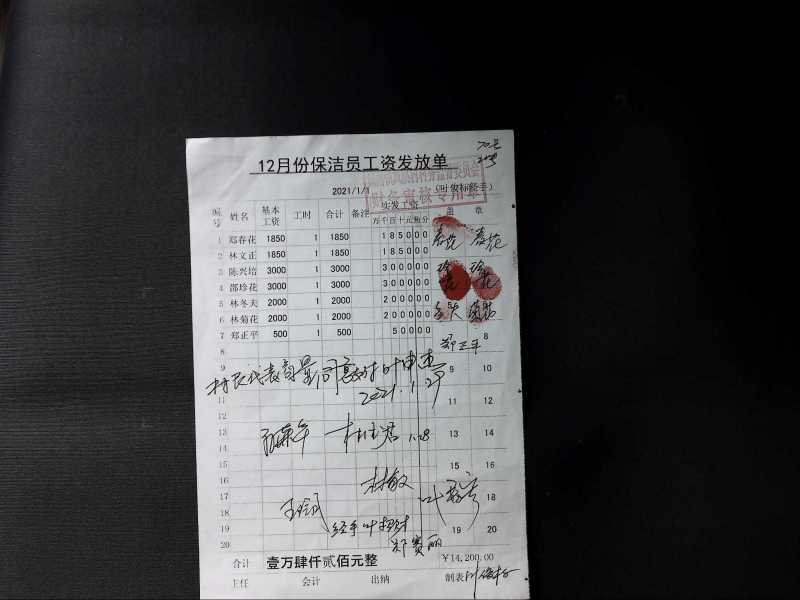 12月份保洁员工资发放单
2021/1/1
财务审核专用章
编号 姓名 基本工资 工时 合计 备注 实发工资 盖 章
万 千 百 十 元 角 分
1 郑春花 1850 1 1850 1 8 5 0 0 0 春花 春花
2 林文正 1850 1 1850 1 8 5 0 0 0
3 陈兴培 3000 1 3000 3 0 0 0 0 0
4 邵珍花 3000 1 3000 3 0 0 0 0 0 珍花 珍花
5 林冬夫 2000 1 2000 2 0 0 0 0 0
6 林菊花 2000 1 2000 2 0 0 0 0 0 菊花
7 郑正平 500 1 500 5 0 0 0 0 郑正平 8
8
9 10
村民代表商量同意
2021.1.29
11 11 12
12
13 13 14
1.28
14
15 15 16
16
林敏
17 18
18
王
19 19 20
经手叶
20
郑赛丽
合计 壹万肆仟贰佰元整 ¥14,200.00
主任 会计 出纳 制表